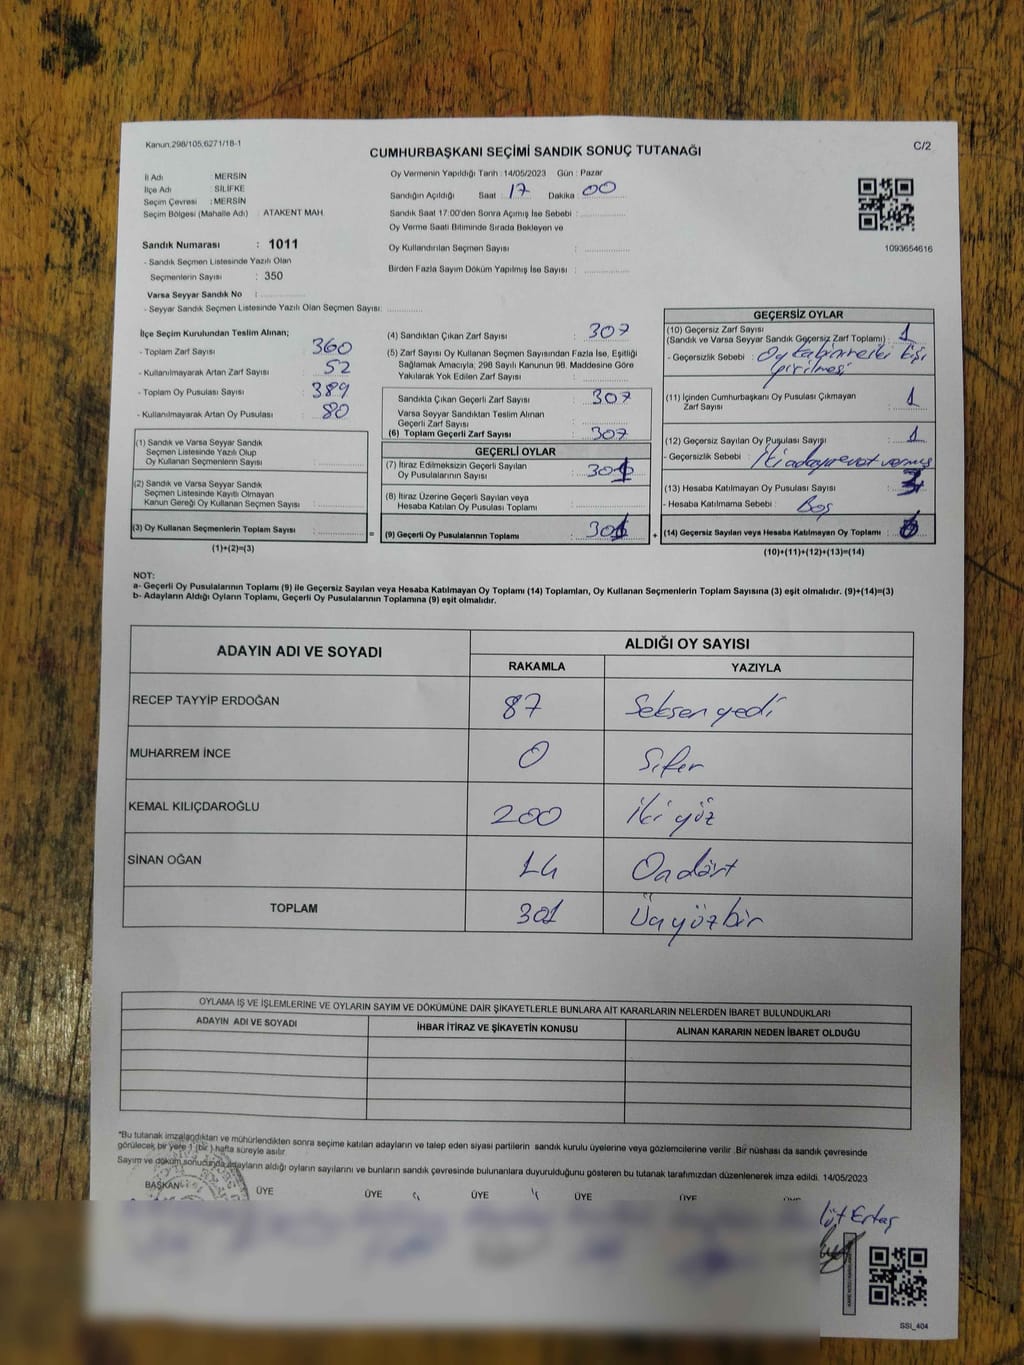 Kanun;298/105,6271/18-1
CUMHURBAŞKANI SEÇİMİ SANDIK SONUÇ TUTANAĞI
C/2
İl Adı : MERSİN
İlçe Adı : SİLİFKE
Seçim Çevresi : MERSİN
Seçim Bölgesi (Mahalle Adı) : ATAKENT MAH.
Sandık Numarası : 1011
- Sandık Seçmen Listesinde Yazılı Olan
Seçmenlerin Sayısı : 350
Varsa Seyyar Sandık No :
- Seyyar Sandık Seçmen Listesinde Yazılı Olan Seçmen Sayısı:
Oy Vermenin Yapıldığı Tarih : 14/05/2023 Gün : Pazar
Sandığın Açıldığı Saat : 17 Dakika : 00
Sandık Saat 17:00'den Sonra Açılmış İse Sebebi :
Oy Verme Saati Bitiminde Sırada Bekleyen ve
Oy Kullandırılan Seçmen Sayısı :
Birden Fazla Sayım Döküm Yapılmış İse Sayısı :
1093654616
İlçe Seçim Kurulundan Teslim Alınan;
- Toplam Zarf Sayısı : 360
- Kullanılmayarak Artan Zarf Sayısı : 52
- Toplam Oy Pusulası Sayısı : 389
- Kullanılmayarak Artan Oy Pusulası : 80
(1) Sandık ve Varsa Seyyar Sandık
Seçmen Listesinde Yazılı Olup
Oy Kullanan Seçmenlerin Sayısı :
(2) Sandık ve Varsa Seyyar Sandık
Seçmen Listesinde Kayıtlı Olmayan
Kanun Gereği Oy Kullanan Seçmen Sayısı :
(3) Oy Kullanan Seçmenlerin Toplam Sayısı : =
(1)+(2)=(3)
(4) Sandıktan Çıkan Zarf Sayısı : 307
(5) Zarf Sayısı Oy Kullanan Seçmen Sayısından Fazla İse, Eşitliği
Sağlamak Amacıyla; 298 Sayılı Kanunun 98. Maddesine Göre
Yakılarak Yok Edilen Zarf Sayısı :
Sandıkta Çıkan Geçerli Zarf Sayısı : 307
Varsa Seyyar Sandıktan Teslim Alınan
Geçerli Zarf Sayısı :
(6) Toplam Geçerli Zarf Sayısı : 307
GEÇERLİ OYLAR
(7) İtiraz Edilmeksizin Geçerli Sayılan
Oy Pusulalarının Sayısı : 301
(8) İtiraz Üzerine Geçerli Sayılan veya
Hesaba Katılan Oy Pusulası Toplamı :
(9) Geçerli Oy Pusulalarının Toplamı : 301 +
GEÇERSİZ OYLAR
(10) Geçersiz Zarf Sayısı
(Sandık ve Varsa Seyyar Sandık Geçersiz Zarf Toplamı) : 1
- Geçersizlik Sebebi : Oy kabinine iki kişi
girilmesi
(11) İçinden Cumhurbaşkanı Oy Pusulası Çıkmayan
Zarf Sayısı : 1
(12) Geçersiz Sayılan Oy Pusulası Sayısı : 1
- Geçersizlik Sebebi : İki adaya evet vermiş
(13) Hesaba Katılmayan Oy Pusulası Sayısı : 3
- Hesaba Katılmama Sebebi : Boş
(14) Geçersiz Sayılan veya Hesaba Katılmayan Oy Toplamı : 6
(10)+(11)+(12)+(13)=(14)
NOT:
a- Geçerli Oy Pusulalarının Toplamı (9) ile Geçersiz Sayılan veya Hesaba Katılmayan Oy Toplamı (14) Toplamları, Oy Kullanan Seçmenlerin Toplam Sayısına (3) eşit olmalıdır. (9)+(14)=(3)
b- Adayların Aldığı Oyların Toplamı, Geçerli Oy Pusulalarının Toplamına (9) eşit olmalıdır.
ADAYIN ADI VE SOYADI ALDIĞI OY SAYISI
RAKAMLA YAZIYLA
RECEP TAYYİP ERDOĞAN 87 Seksen yedi
MUHARREM İNCE 0 Sıfır
KEMAL KILIÇDAROĞLU 200 İki yüz
SİNAN OĞAN 14 On dört
TOPLAM 301 Üç yüz bir
OYLAMA İŞ VE İŞLEMLERİNE VE OYLARIN SAYIM VE DÖKÜMÜNE DAİR ŞİKAYETLERLE BUNLARA AİT KARARLARIN NELERDEN İBARET BULUNDUKLARI
ADAYIN ADI VE SOYADI İHBAR İTİRAZ VE ŞİKAYETİN KONUSU ALINAN KARARIN NEDEN İBARET OLDUĞU
*Bu tutanak imzalandıktan ve mühürlendikten sonra seçime katılan adayların ve talep eden siyasi partilerin sandık kurulu üyelerine veya gözlemcilerine verilir .Bir nüshası da sandık çevresinde
görülecek bir yere 1 (bir ) hafta süreyle asılır.
Sayım ve döküm sonucunda adayların aldığı oyların sayılarını ve bunların sandık çevresinde bulunanlara duyurulduğunu gösteren bu tutanak tarafımızdan düzenlenerek imza edildi. 14/05/2023
BAŞKAN ÜYE ÜYE ÜYE ÜYE ÜYE ÜYE
Ertaş
SSI_404